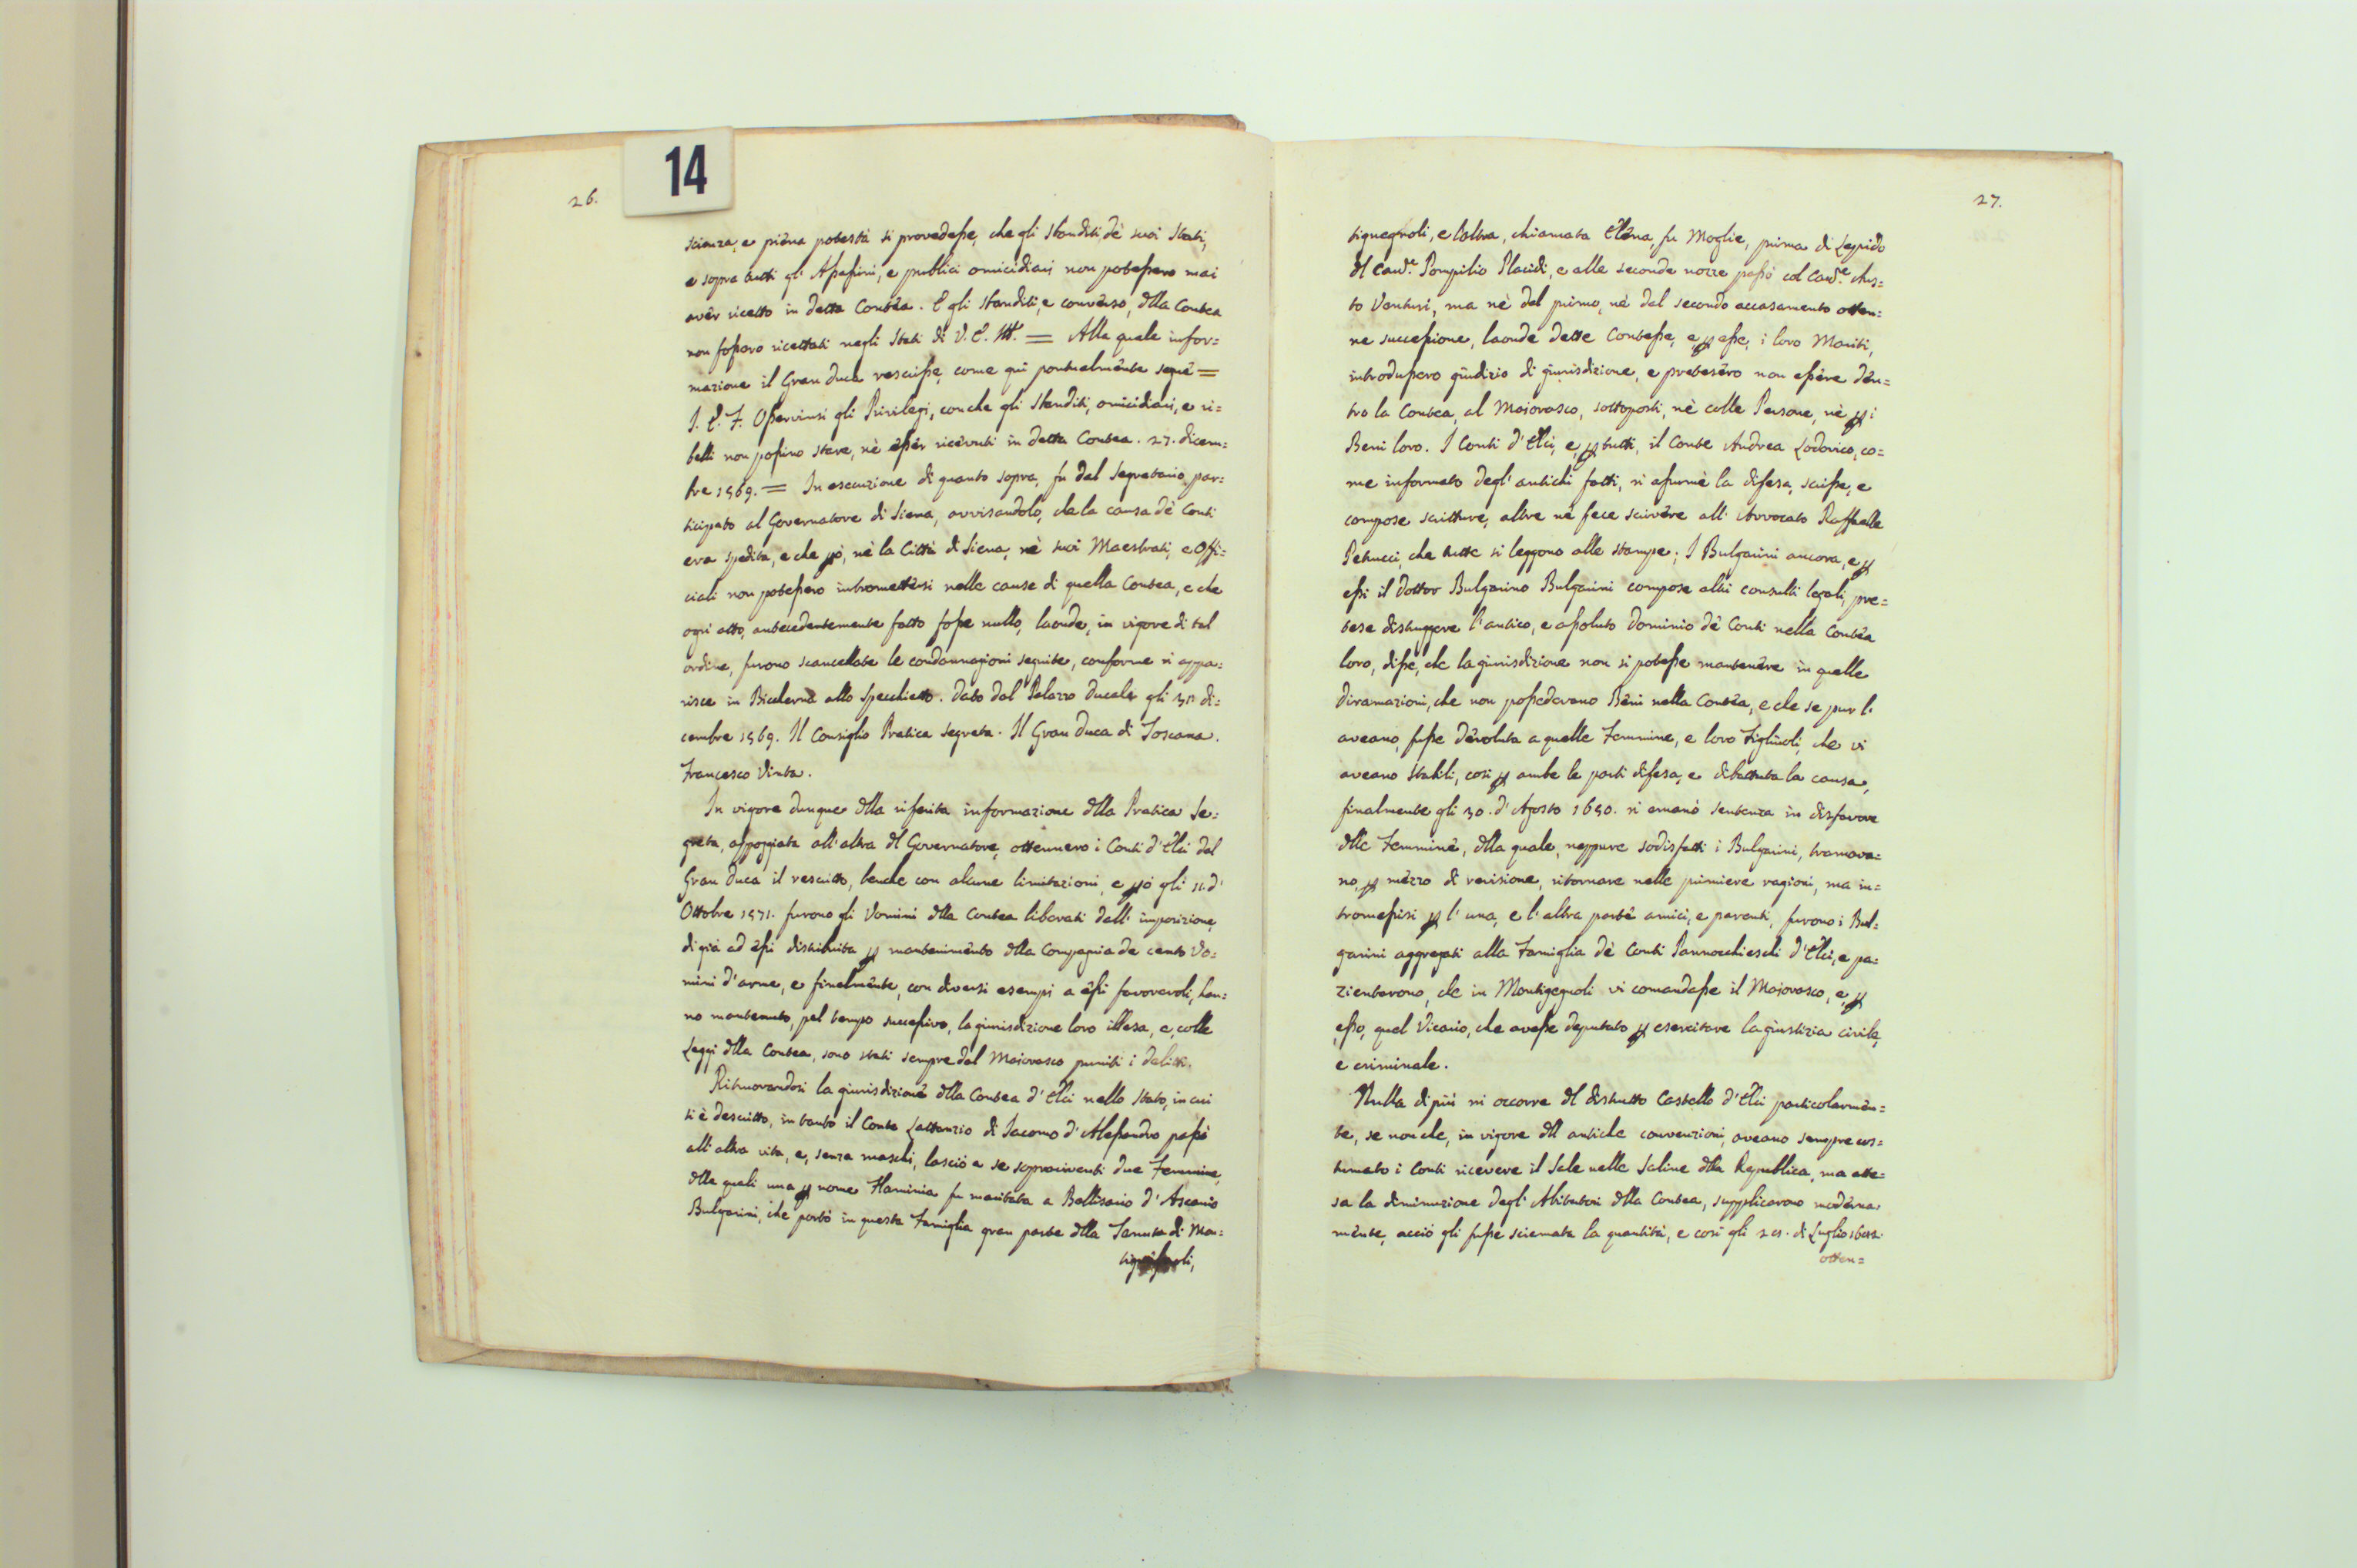 14
26.
scienza, e piena potestà si provedesse, che gli sbanditi de' suoi Stati,
e sopra tutti gl' Assassini, e publici omicidiari non potessero mai
aver ricetto in detta Contea. E gli sbanditi, e converso, dlla Contea
non fossero ricettati negli Stati di V. E. Ill. = Alla quale infor=
mazione il Gran Duca rescrisse, come qui pontualmente segue =
S. E. F. Osservinsi gli Privilegi, con che gli sbanditi, omicidiari, e ri=
belli non possino stare, nè esser ricevuti in detta Contea. 27. dicem=
bre 1569. = In esecuzione di quanto sopra, fu dal Segretario par=
ticipato al Governatore di Siena, avvisandolo, che la causa de' Conti
era spedita, e che però, nè la Città di Siena, nè suoi Maestrati, e Offi=
ciali non potessero intromettersi nelle cause di quella Contea, e che
ogni atto, antecedentemente fatto fosse nullo, laonde, in vigore di tal
ordine, furono scancellate le condannagioni seguite, conforme si appa=
risce in Biccherna allo Specchietto. Dato dal Palazzo Ducale gli di=
cembre 1569. Il Consiglio Pratica segreta. Il Gran Duca di Toscana.
Francesco Vinta.
In vigore dunque dlla riferita informazione dlla Pratica Se=
greta, appoggiata all' altra dl Governatore, ottennero i Conti d' Elci dal
Gran Duca il rescritto, benche con alcune limitazioni, e però gli 11. d'
Ottobre 1571. furono gli Vomini dlla Contea liberati dall' imposizione,
di già ad essi distribuita per mantenimento dlla Compagnia de cento Vo=
mini d' arme, e finalmente, con diversi esempi a essi favorevoli, han=
no mantenuto, pel tempo successivo, la giurisdizione loro illesa, e, colle
Leggi dlla Contea, sono stati sempre dal Maiorasco puniti i delitti.
Ritrovandosi la giurisdizione dlla Contea d' Elci nello stato, in cui
si è descritto, in tanto il Conte Lattanzio di Iacomo d' Alessandro passò
all' altra vita, e, senza maschi, lasciò a se sopraviventi due Femmine,
dlle quali una per nome Flaminia fu maritata a Bellisario d' Ascanio
Bulgarini, che portò in questa Famiglia gran parte dlla Tenuta di Mon=
27.
tignegnoli, e l'altra, chiamata Elena, fu Moglie, prima di Lepido
dl Cavᵉ. Pompilio Placidi, e alle seconde nozze passò col Cavᵉ. Aus=
to Venturi, ma nè del primo, nè del secondo accasamento otten=
ne successione, laonde dette Contesse, e per esse, i loro Mariti,
introdussero giudizio di giurisdizione, e pretesero non essere den=
tro la Contea, al Maiorasco, sottoposti, nè colle Persone, nè per i
Beni loro. I Conti d' Elci, e, per tutti, il Conte Andrea Lodovico, co=
me informato degl' antichi fatti, si assumè la difesa, scrisse, e
compose scritture, altre ne fece scrivere all' Avvocato Raffaelle
Petrucci, che tutte si leggono alle stampe; I Bulgarini ancora, e per
essi il Dottor Bulgarino Bulgarini compose altri consulti legali, pre=
tese distruggere l' antico, e assoluto Dominio de' Conti nella Contea
loro, disse, che la giurisdizione non si potesse mantenere in quelle
diramazioni, che non possedevano Beni nella Contea, e che se pur li
aveano, fusse devoluta a quelle Femmine, e loro Figliuoli, che vi
aveano stabili, così per ambe le parti difesa, e dibattuta la causa,
finalmente gli 30. d' Agosto 1650. si emanò sentenza in disfavore
dlle Femmine, dlla quale, neppure sodisfatti i Bulgarini, tramava=
no, per mezzo di revisione, ritornare nelle primiere ragioni, ma in=
tromessisi per l' una, e l' altra parte amici, e parenti, furono i Bul=
garini aggregati alla Famiglia de' Conti Pannocchieschi d' Elci, e pa=
zientarono, che in Montigegnoli vi comandasse il Maiorasco, e, per
esso, quel Vicario, che avesse deputato per esercitare la giustizia civile,
e criminale.
Nulla di più mi occorre dl distrutto Castello d' Elci particolarmen=
te, se non che, in vigore dll antiche convenzioni, aveano sempre cos=
tumato i Conti ricevere il Sale nelle Saline dlla Republica, ma atte=
sa la diminuzione degl' Abitatori dlla Contea, supplicarono moderna=
mente, acciò gli fusse sciemata la quantità, e così gli di Luglio
otten=